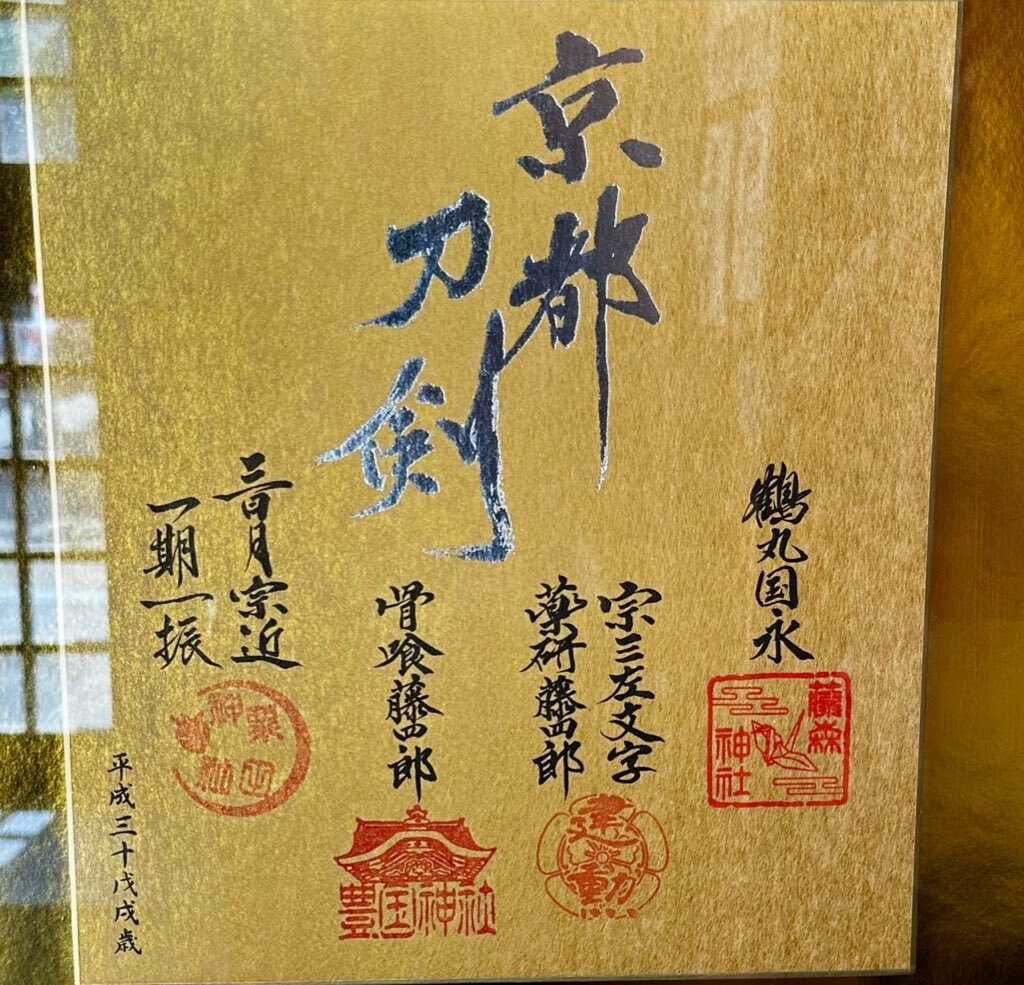 京都
刀剣
鶴丸国永
藤森
神社
宗三左文字
薬研藤四郎
建勲
骨喰藤四郎
豊国神社
三日月宗近
一期一振
粟田
神社
平成三十戊戌歳